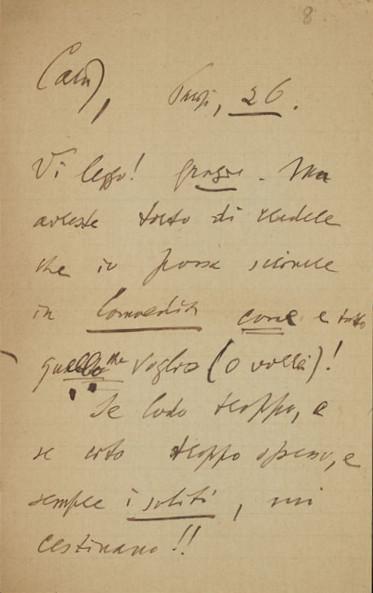 8
Caro,
Parigi, 26.
Vi leggo! grazie. Ma
avreste torto di credere
che io possa scrivere
in Commedia come e tutto
quello che voglio (o vollì)!
Se lodo troppo, e
se cito troppo spesso, e
sempre i soliti, mi
cestinano!!